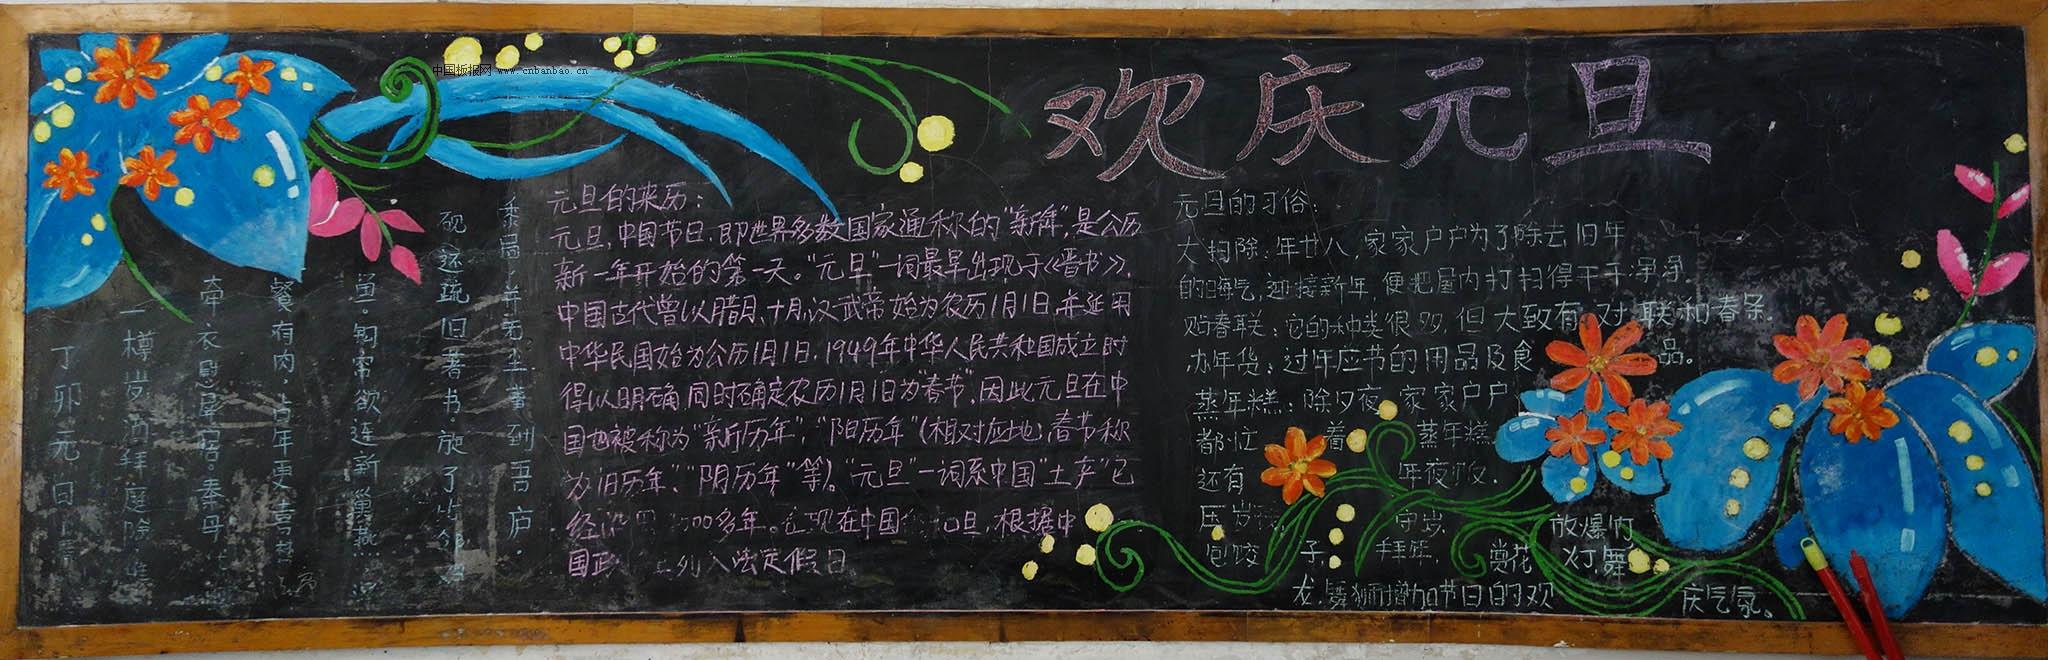 中国板报网 www.cnbanbao.cn
欢庆元旦
丁卯元日
一樽岁酒拜庭除
牵衣慰犀 奉母
餐有肉,占年更喜梦
鱼。钩帘欲连新巢燕
砚还疏旧著书。旋了
黍局,并无尘事到吾庐。
元旦的来历:
元旦,中国节日,即世界多数国家通称的“新年”,是公历
新一年开始的第一天。“元旦”一词最早出现于《晋书》,
中国古代曾以腊月、十月,汉武帝始为农历1月1日,并延用
中华民国始为公历1月1日,1949年中华人民共和国成立时
得以明确,同时确定农历1月1日为“春节”,因此元旦在中
国也被称为“新历年”,“阳历年”(相对应地,春节称
为旧历年”,“阴历年”等)。“元旦”一词系中国“土产”已
经沿用 00多年。在现在中国 元旦,根据中
国政 上列入法定假日
元旦的习俗:
大扫除:年廿八,家家户户为了除去旧年
的晦气,迎接新年,便把屋内打扫得干干净净.
贴春联:它的种类很多,但大致有对联和春条.
办年货:过年应节的用品及食品。
蒸年糕:除夕夜,家家户户
都忙着蒸年糕.
还有年夜饭.
压岁 守岁
包饺子,拜年,赏花 放爆竹
灯,舞
龙,舞狮增加节日的欢
庆气氛。